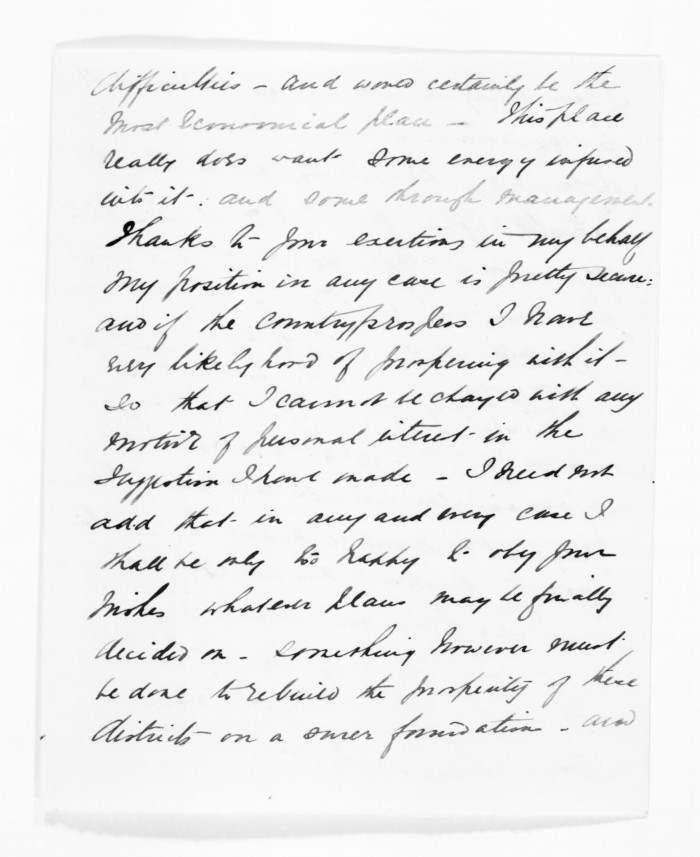 difficulties - and would certainly be the
most economical plan - This place
really does want some energy infused
into it: and some through management
Thanks to your exertions in my behalf
my position in any case is pretty secure:
and if the country prospers I have
every likelyhood of prospering with it -
So that I cannot be charged with any
motive of personal interest in the
suggestion I have made - I need not
add that in any and every case I
shall be only too happy to obey your
wishes whatever plans may be finally
decided on - something however must
be done to rebuild the prosperity of these
districts on a surer foundation - and